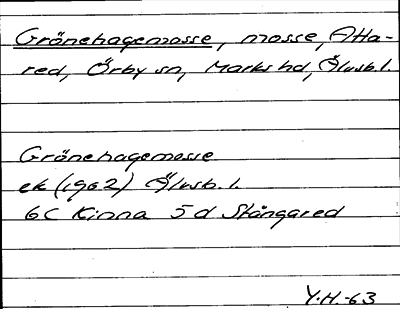 Grönehagemosse, mosse, Atta-
red, Örby sn, Marks hd, Älvsb. l.
Grönehagemosse
ek (1962) Älvsb. l.
6C Kinna 5 d Stångared
Y.H.-63